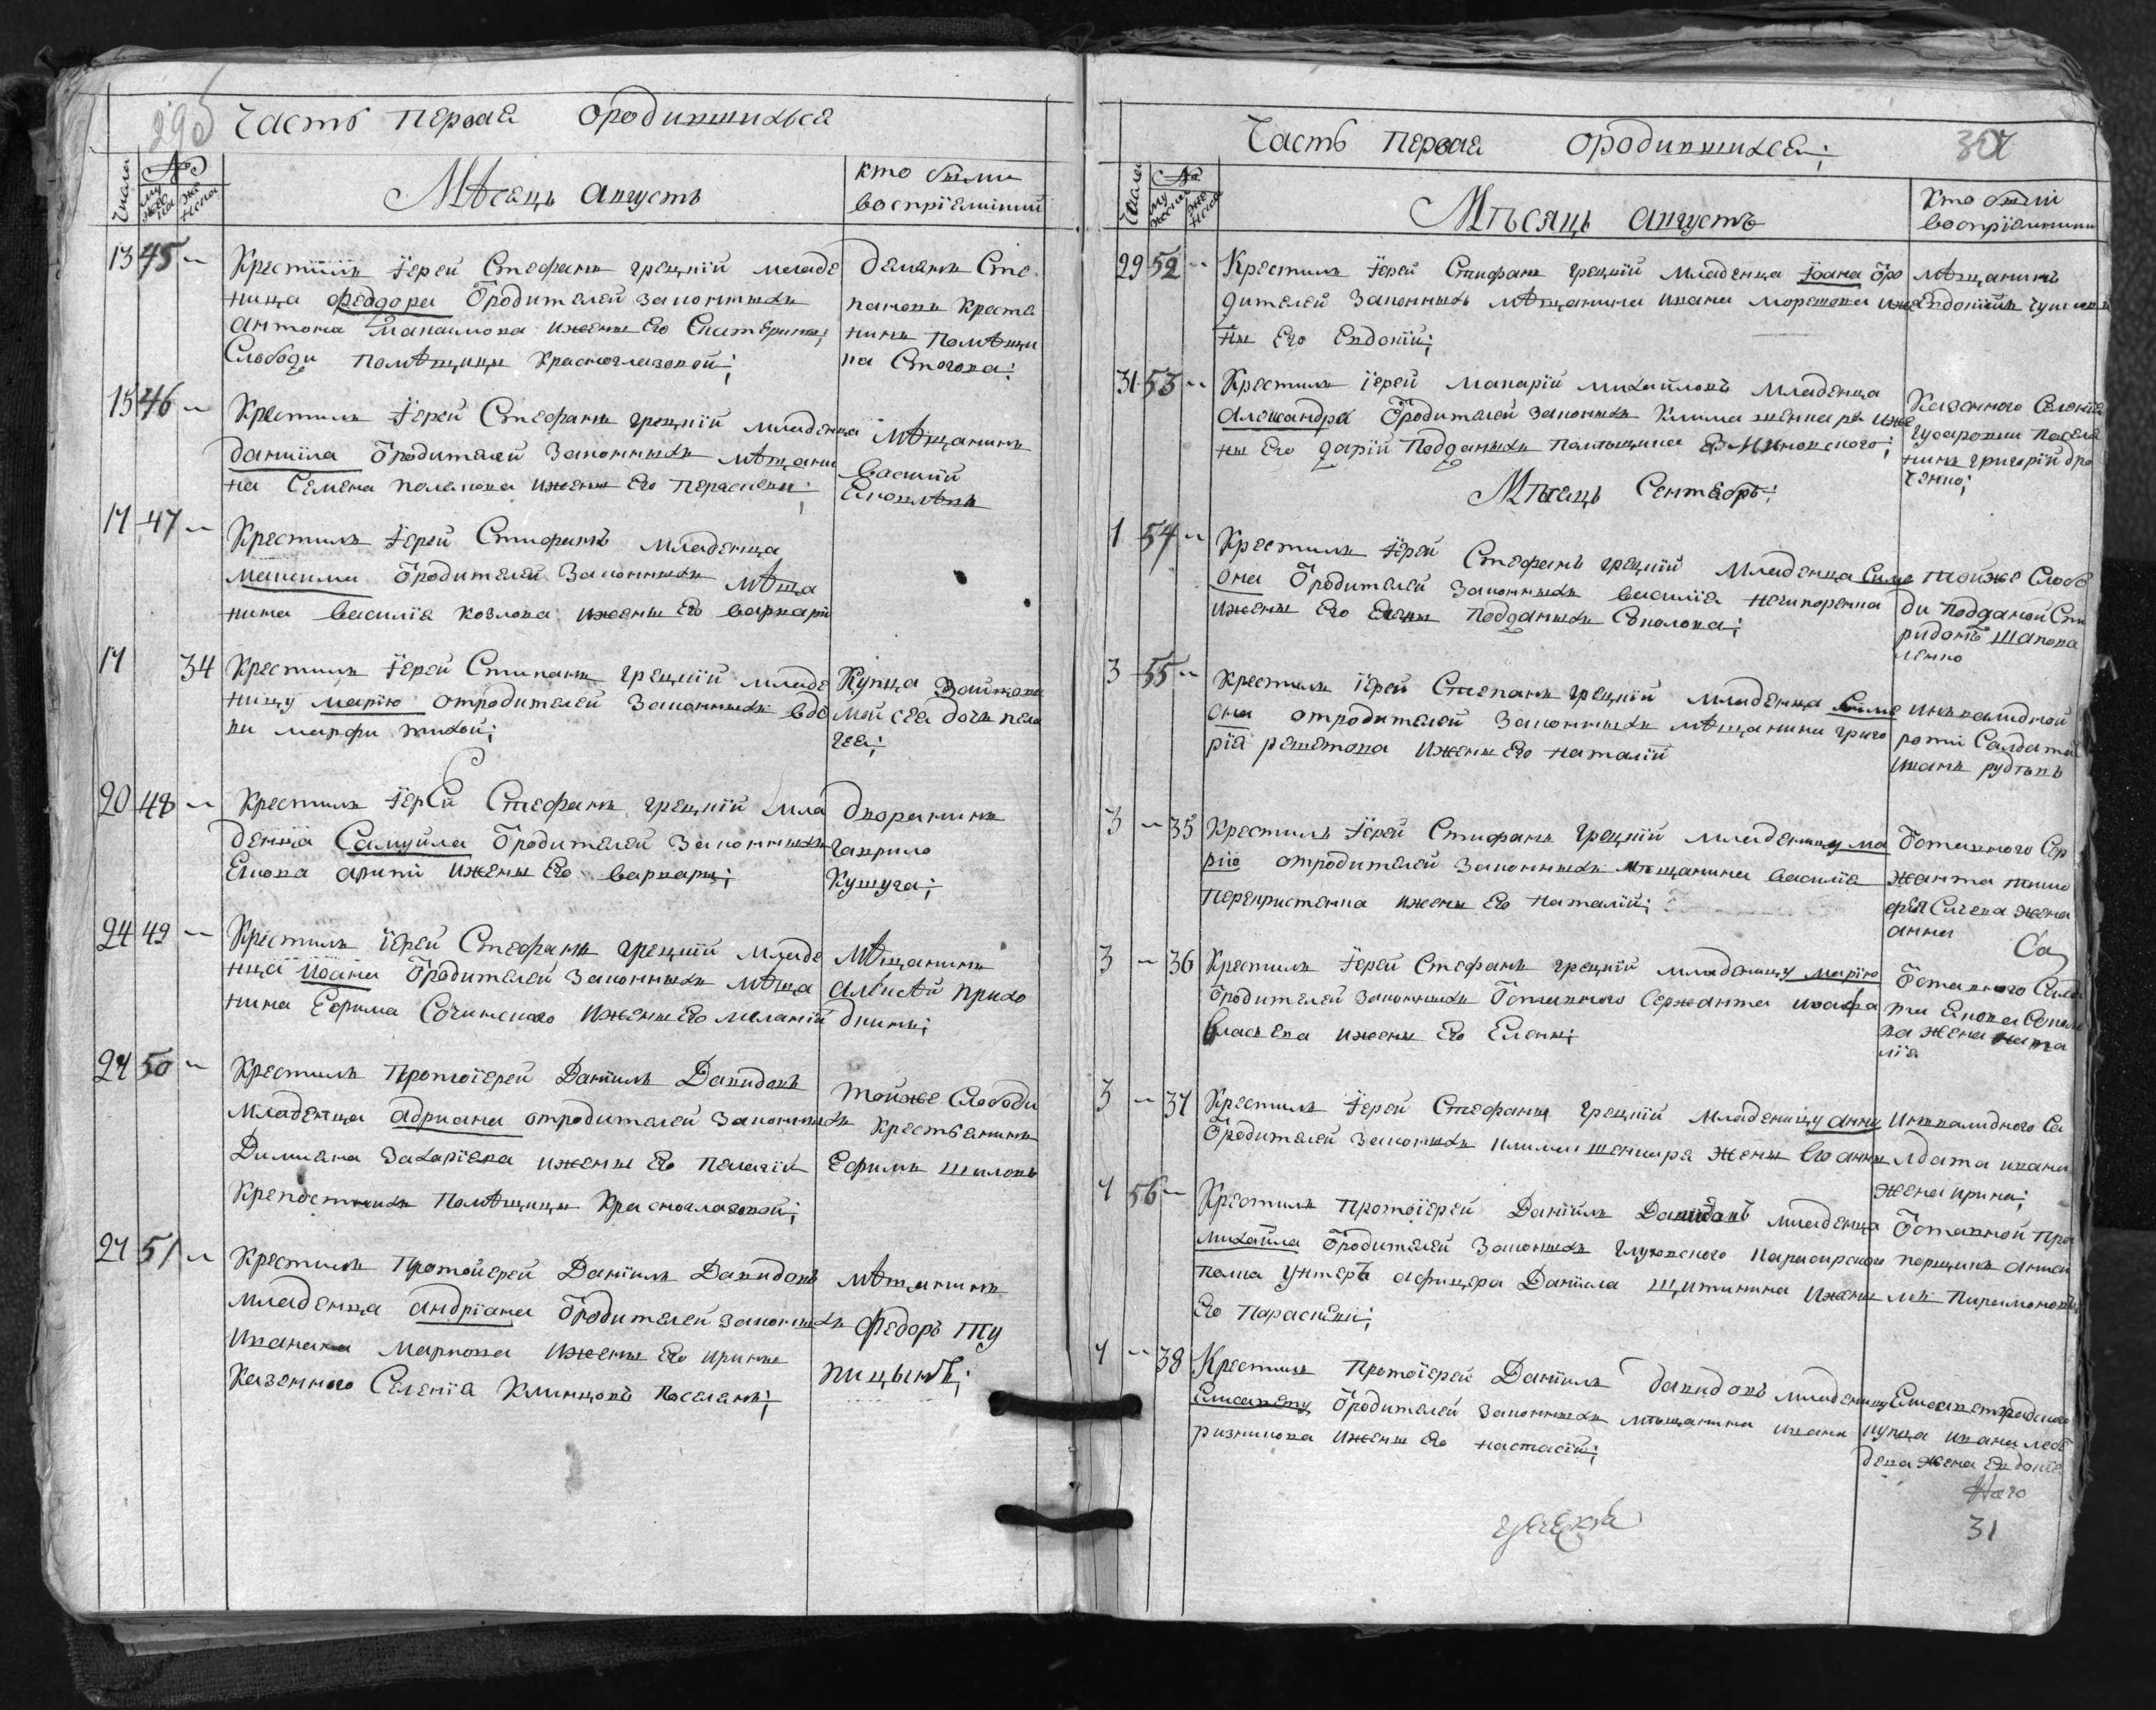 290
Часть первая ородившихься
Число № мужеска женска
Мѣсяць августъ
кто были
воспрiемники
13 45 Крестилъ Iерей Стефанъ грецкiй младе
нца Феодора ѿродителей законныхъ
антона Мака́имова ижены Его Екатерины,
Слободи помѣщицы Красноглазовой;
Демянъ Сте
пановъ крестя
нинъ помѣщи
ка Стогова;
15 46 Крестилъ Iерей Стефанъ грецкiй младенца
данiила ѿродителей законныхъ мѣщани
на Семена полякова ижены Его параскеви;
мѣщанинъ
василiй
Яковлѣвъ
17 47 Крестилъ Iерей Стифанъ младенца
максима ѿродителей законныхъ мѣща
нина василiя козлова ижены Его варвари
17 34 Крестилъ Iерей Стипанъ грецкiй младе
ницу марiю отродителей законныхъ вдо
ви марфи тихой;
Купца
дочь пела
гея;
20 48 Крестилъ Iерей Стефанъ грецкiй мла
денца Самуйла ѿродителей законныхъ
Якова ижены Его варвари;
дворянинъ
гаврило
Кушуга;
24 49 Крестилъ Iерей Стефанъ грецкiй младе
нца Иоана ѿродителей законныхъ мѣща
нина Ефрима Сочинского иженыЕго меланiй
мѣщанинъ
алексѣй прихо
дкинъ;
24 50 Крестилъ Протоiерей Данiилъ Давидовъ
младенца адриана отродителей законныхъ
Димиана Захарiева иженыЕго пелагiй
Крепостныхъ помѣщицы Красноглазовой;
тойже Слободи
крестьянинъ
Ефимъ шиловъ
27 51 Крестилъ Протоиерей Данiилъ Давидовъ
младенца андрiана ѿродителей законныхъ
Ивана Маркова Иженыъ Его ирины
Казенного Селенiя Клинцовъ поселянъ;
мѣщанинъ
Федоръ Ту
пицынъ;
Часть первая ородившихся;
307
Число № мужеска женска
Мѣсяць августъ
кто были
воспрiемники
29 52 Крестилъ Iерей Стифанъ грецкiй младенца Iоана ѿро
дителей законныхъ мѣщанина ивана морозова иже
ны Его Евдокiй;
мѣщанинъ
Евдокимъ
31 53 Крестилъ iерей макарiй михайловъ младенца
александра ѿродителей законныхъ Клима шенкаря иже
ны Его дарiй подданыхъ помѣщика
Казенного Селенiя
посяля
нинъ григорiй дро
ченко;
Мѣсяць Сентябрь:
1 54 Крестилъ Iерей Стефанъ грецкiй младенца Симе
она ѿродителей законныхъ василiя нечипоренка
иженыъ Его Елены подданыхъ Соколова;
тойже Слобо
ди подданой Спи
ридонъ шапова
ленко
3 55 Крестилъ iерей Степанъ грецкiй младенца Симе
она отродителей законныхъ мѣщанина григо
рiя решетова иженыъ Его наталiй
инвалидной
роти Салдатъ
иванъ рудтовъ
3 35 Крестилъ Iерей Стифанъ грецкiй младеницу ма
рiю отродителей законныхъ мѣщанина василiя
перехристенка ижены Его наталiй;
ѿставного Сер
жанта
Сичева жена
анна
3 36 Крестилъ Iерей Стефанъ грецкiй младеницу марiю
ѿродителей законныхъ ѿставного Сержанта
власьева иженыъ Его Елены;
ѿставного Салда
та Якова Соколо
ва жена ната
лiя
3 37 Крестилъ Iерей Стефанъ грецкiй младеницу анну
ѿродителей законныхъ клима шенкаря женыъ Его анны
инвалидного Са
лдата ивана
жена ирина;
4 56 Крестилъ протоiерей Данiилъ Давидовъ младенца
михайла ѿродителей законныхъ глуховского кирасирского
полка Унтеръ афицера Данiила Щитинина иженыъ
Его параскевiи;
ѿставной пра
порщикъ
Пиримоновъ
4 38 Крестилъ протоiерей Данiилъ давидовъ младеницу
Елисавету ѿродителей законныхъ мѣщанина ивана
ризникова иженыъ Его настасiй;
Елисаветградского
купца ивана лебе
дева жена Евдокiя
31